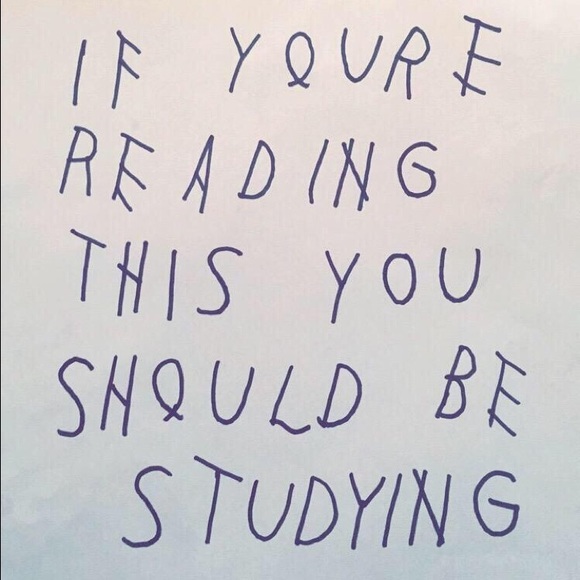 IF YOURE
READING
THIS YOU
SHOULD BE
STUDYING